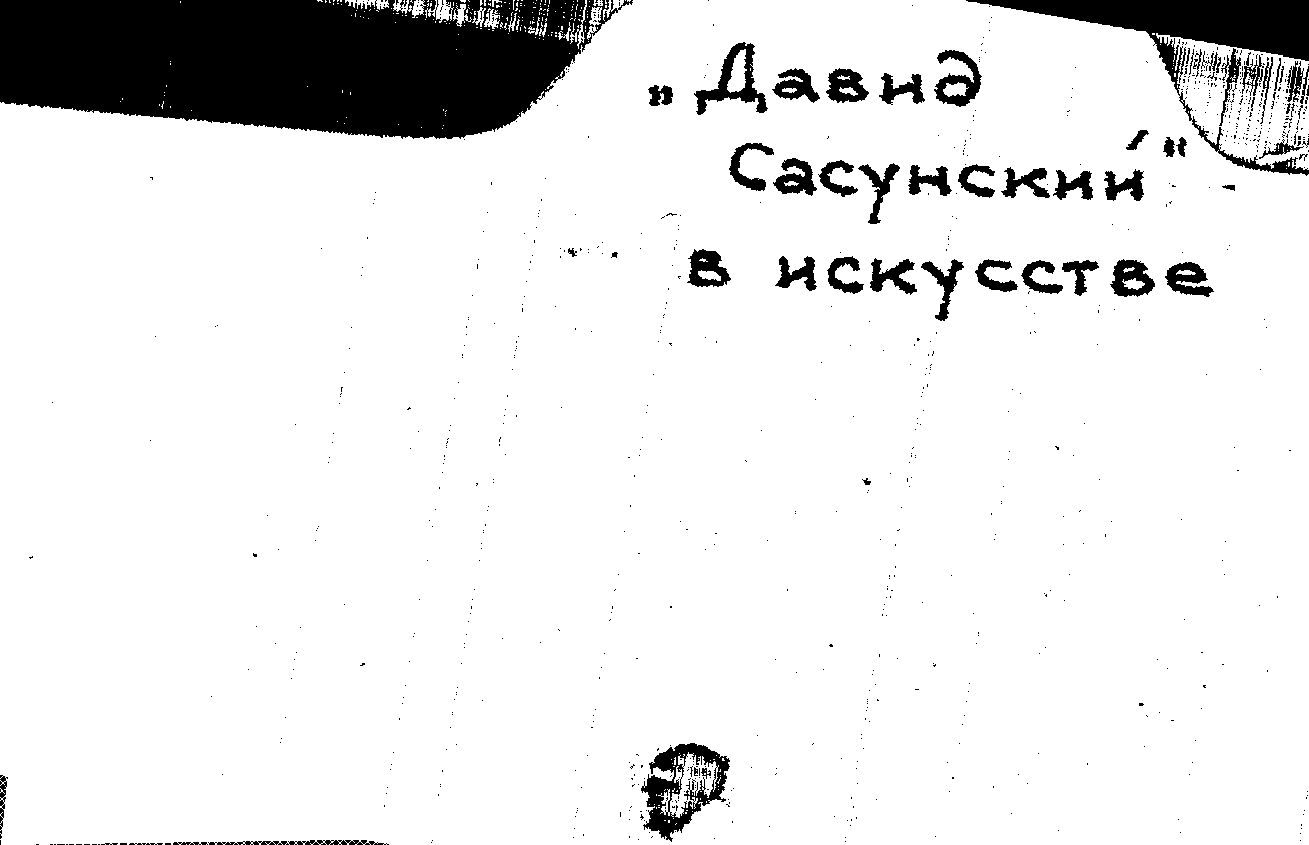 „Давид
Сасунский"
в искусстве